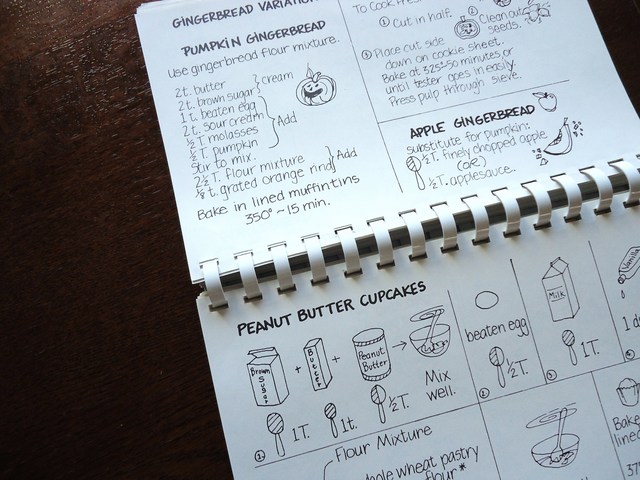 GINGERBREAD
PUMPKIN GINGERBREAD
Use gingerbread flour mixture.
2t. butter
2t. brown sugar
cream
1t. beaten egg
2t. sour cream
½T molasses
½T. pumpkin
Add
Stir to mix.
2½T. flour mixture
⅛t. grated orange rind
Add
Bake in lined muffin tins
350° ~ 15 min.
To Cook
① Cut in half.
② Clean out
seeds.
③ Place cut side
down on cookie sheet.
Bake at 325° 50 minutes, or
until tester goes in easily.
Press pulp through sieve.
APPLE GINGERBREAD
substitute for pumpkin:
½T. finely chopped apple
(OR)
½T. applesauce.
PEANUT BUTTER CUPCAKES
Brown
Sugar
+
Butter
+
Peanut
Butter
→
Mix
well.
1T.
1t.
½T.
1.
beaten egg
½T.
2.
Milk
1T.
3.
Vanilla
1
Flour Mixture
whole wheat pastry
flour*
Bake